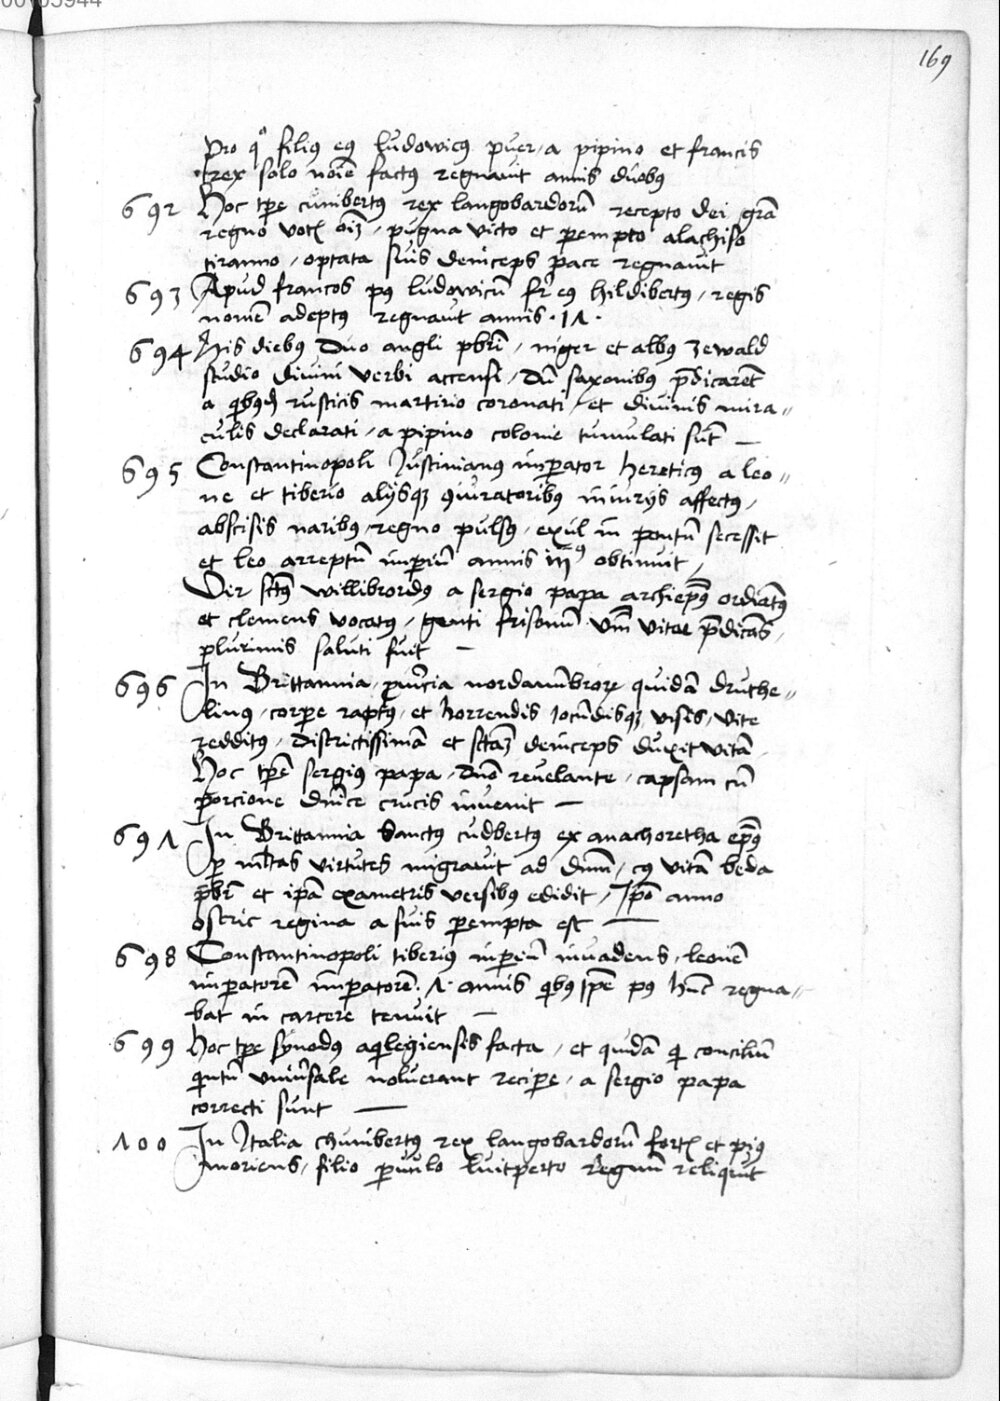 00105944
169
Pro qͦ filiꝰ eꝰ ludowicꝰ puer, a pipino et francis
rex solo noīe factꝰ regnauit annis duobꝰ
692 Hoc tp̄e cunibertꝰ rex langobardorū recepto dei grā
regno , pugna victo et ꝑempto alachiso
tiranno, optata suis deinceps pace regnauit
693 Apud francos pꝰ ludowicū fr̄ eꝰ hildibertꝰ, regis
nomē adeptꝰ regnauit annis · 1Λ ·
694 His diebꝰ duo angli pb̄ri, niger et albꝰ zewald
studio diuini verbi accensi, dū saxonibꝰ p̄dicarēt
a rusticis martirio coronati, et diuinis mira„
culis declarati, a pipino colonie tumulati sūt —
695 Constantinopoli Justinianꝰ imꝑator hereticꝰ a leo„
ne et tiberio alijsqꝫ ꝯiuratoribꝰ iniurijs affectꝰ,
abscisis naribꝰ, regno pulsꝰ, exul in pontū secessit
et leo arreptū imꝑiū annis obtinuit,
Vir sctꝰ willibrordꝰ a sergio papa archiep̄ꝰ ordiātꝰ
et clemens vocatꝰ, genti frisonū p̄dicās,
plurimis saluti fuit —
696 In Brittannia, ꝓuīcia nordanūbroꝝ quidā druthe„
linꝰ, corꝑe raptꝰ, et horrendis iocūdisqꝫ visis, vite
redditꝰ, districtissimā et sctāꝫ deinceps duxit vitā,
Hoc tp̄e sergius papa, dn̄o reuelante, capsam cū
porcione dn̄ice crucis inuenit —
69Λ In Brittannia Sanctꝰ cudbertꝰ ex anachoretha ep̄ꝰ
ꝑ ml̄tas virtutes migrauit ad dn̄m, cꝰ vitā beda
pb̄r et ipā exametris versibꝰ edidit, Ip̄o anno
osric regina a suis ꝑempta est —
698 Constantinopoli tiberiꝰ imꝑiū inuadens, leonē
imꝑatorē imꝑatorē · Λ · annis qibꝰ ip̄e pꝰ hūc regna„
bat in carcere tenuit —
699 Hoc tp̄e synodꝰ aqilegiensis facta, et quidā qi conciliū
qintū vniūsale noluerant reciꝑe, a sergio papa
correcti sunt —
Λ00 In Italia chunibertꝰ rex langobardorū et piꝰ
moriens, filio ꝑuulo luitperto regnū reliqit